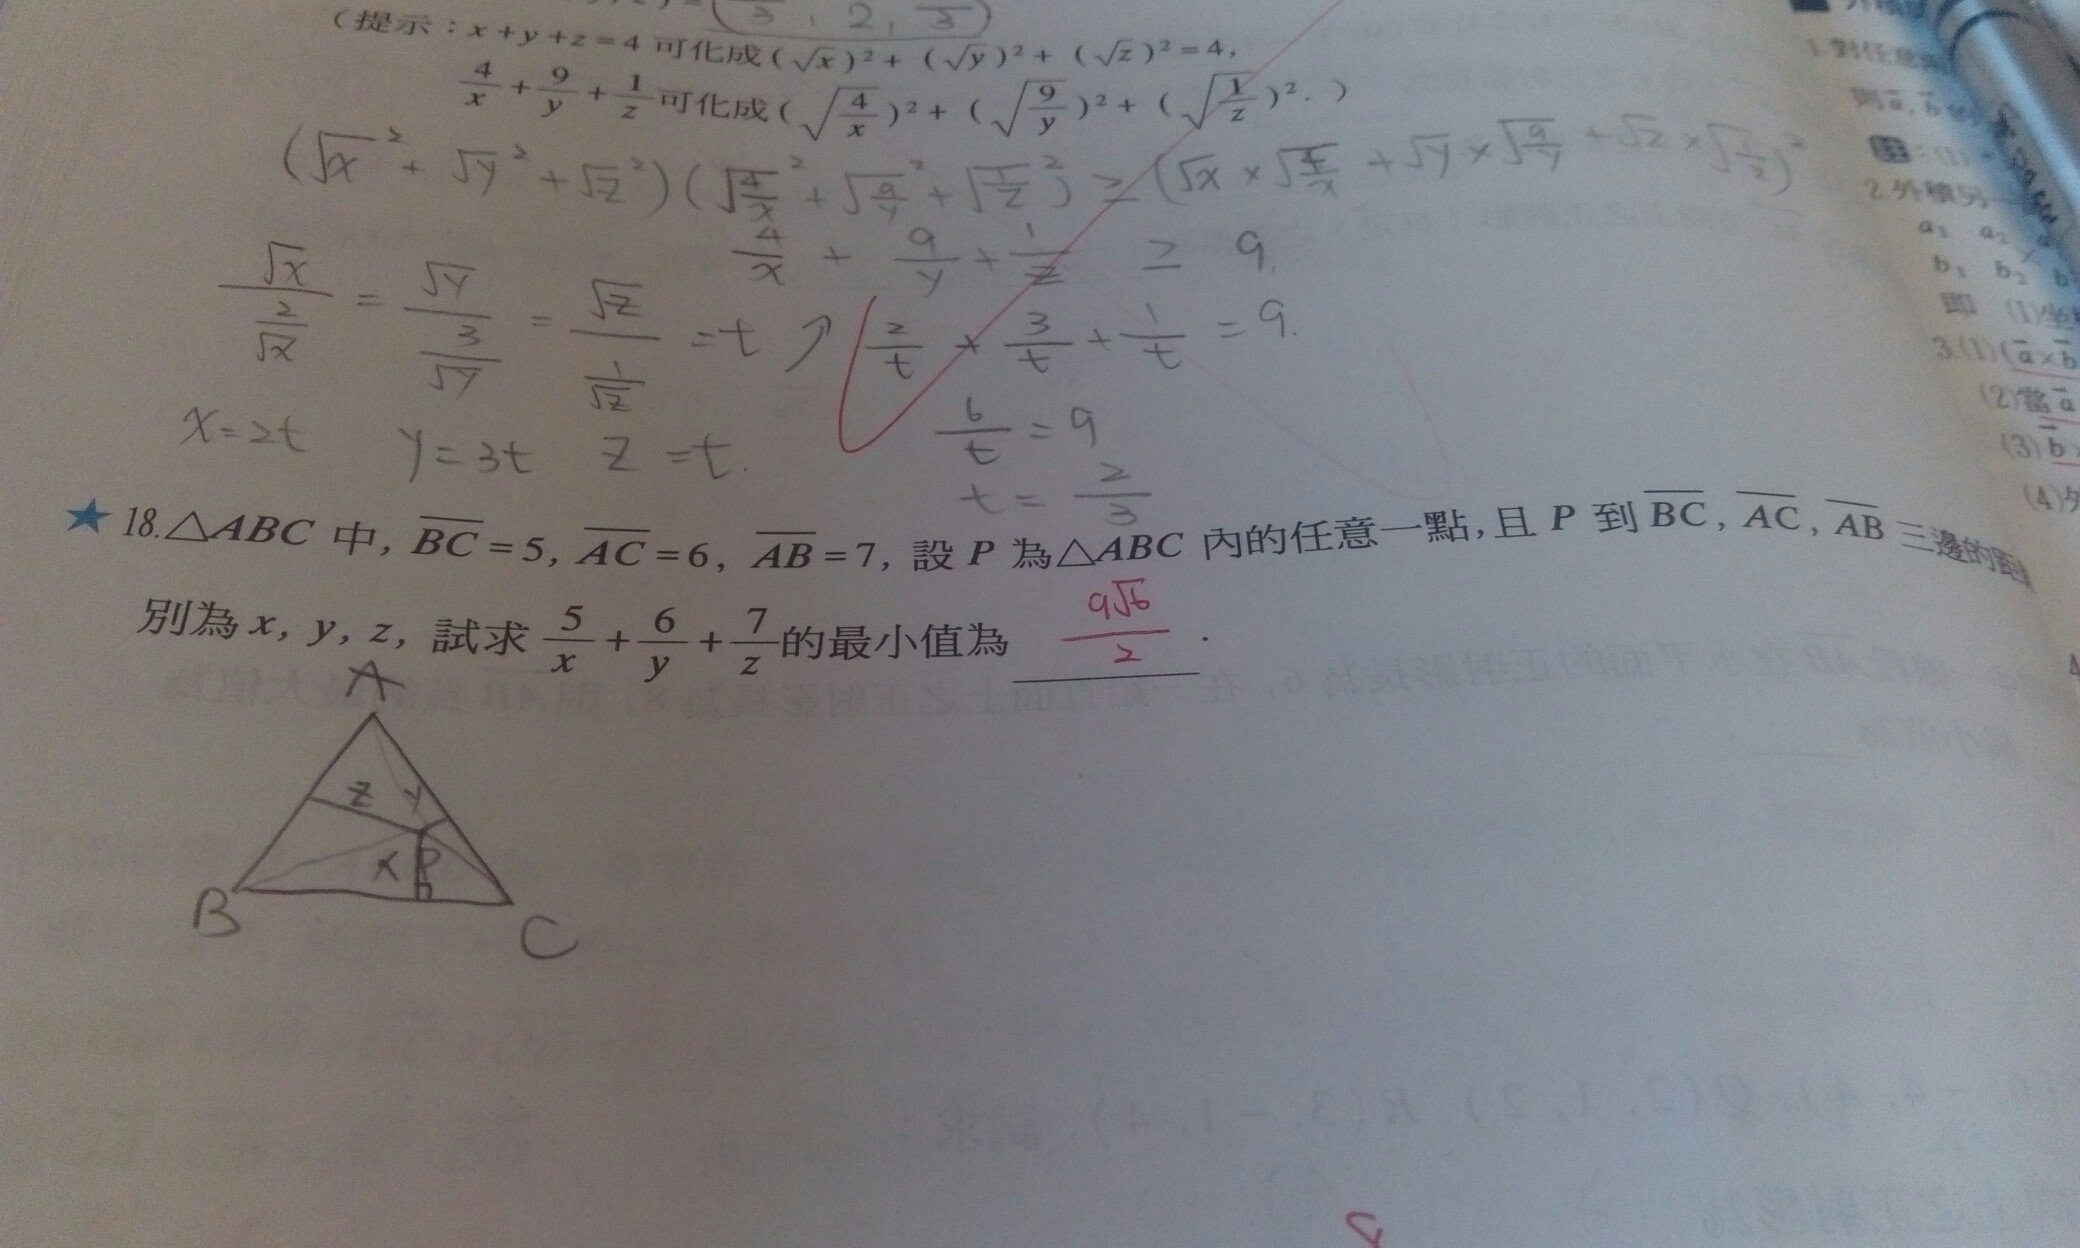 3, 2, 3)
(提示：x+y+z=4 可化成(√x)²+(√y)²+(√z)²=4,
4/x+9/y+1/z可化成(√(4/x))²+(√(9/y))²+(√(1/z))².)
(√x²+√y²+√z²)(√(4/x)²+√(9/y)²+√(1/z)²)≥(√x×√(4/x)+√y×√(9/y)+√z×√(1/z))²
4/x+9/y+1/z ≥ 9.
√x/(2/√x)=√y/(3/√y)=√z/(1/√z)=t
2/t+3/t+1/t=9.
6/t=9
x=2t y=3t z=t.
t=2/3
★ 18.△ABC 中, BC=5, AC=6, AB=7, 設 P 為△ABC 內的任意一點, 且 P 到 BC, AC, AB 三邊的距
別為 x, y, z, 試求 5/x+6/y+7/z的最小值為 9√6/2 .
A
z y
x P
B C
1.對任意
則a, b
證：(1)
2.外積另一
a₁ a₂ a
b₁ b₂ b
即 (1)
3.(1)(a×b
(2)當a
(3)b
(4)